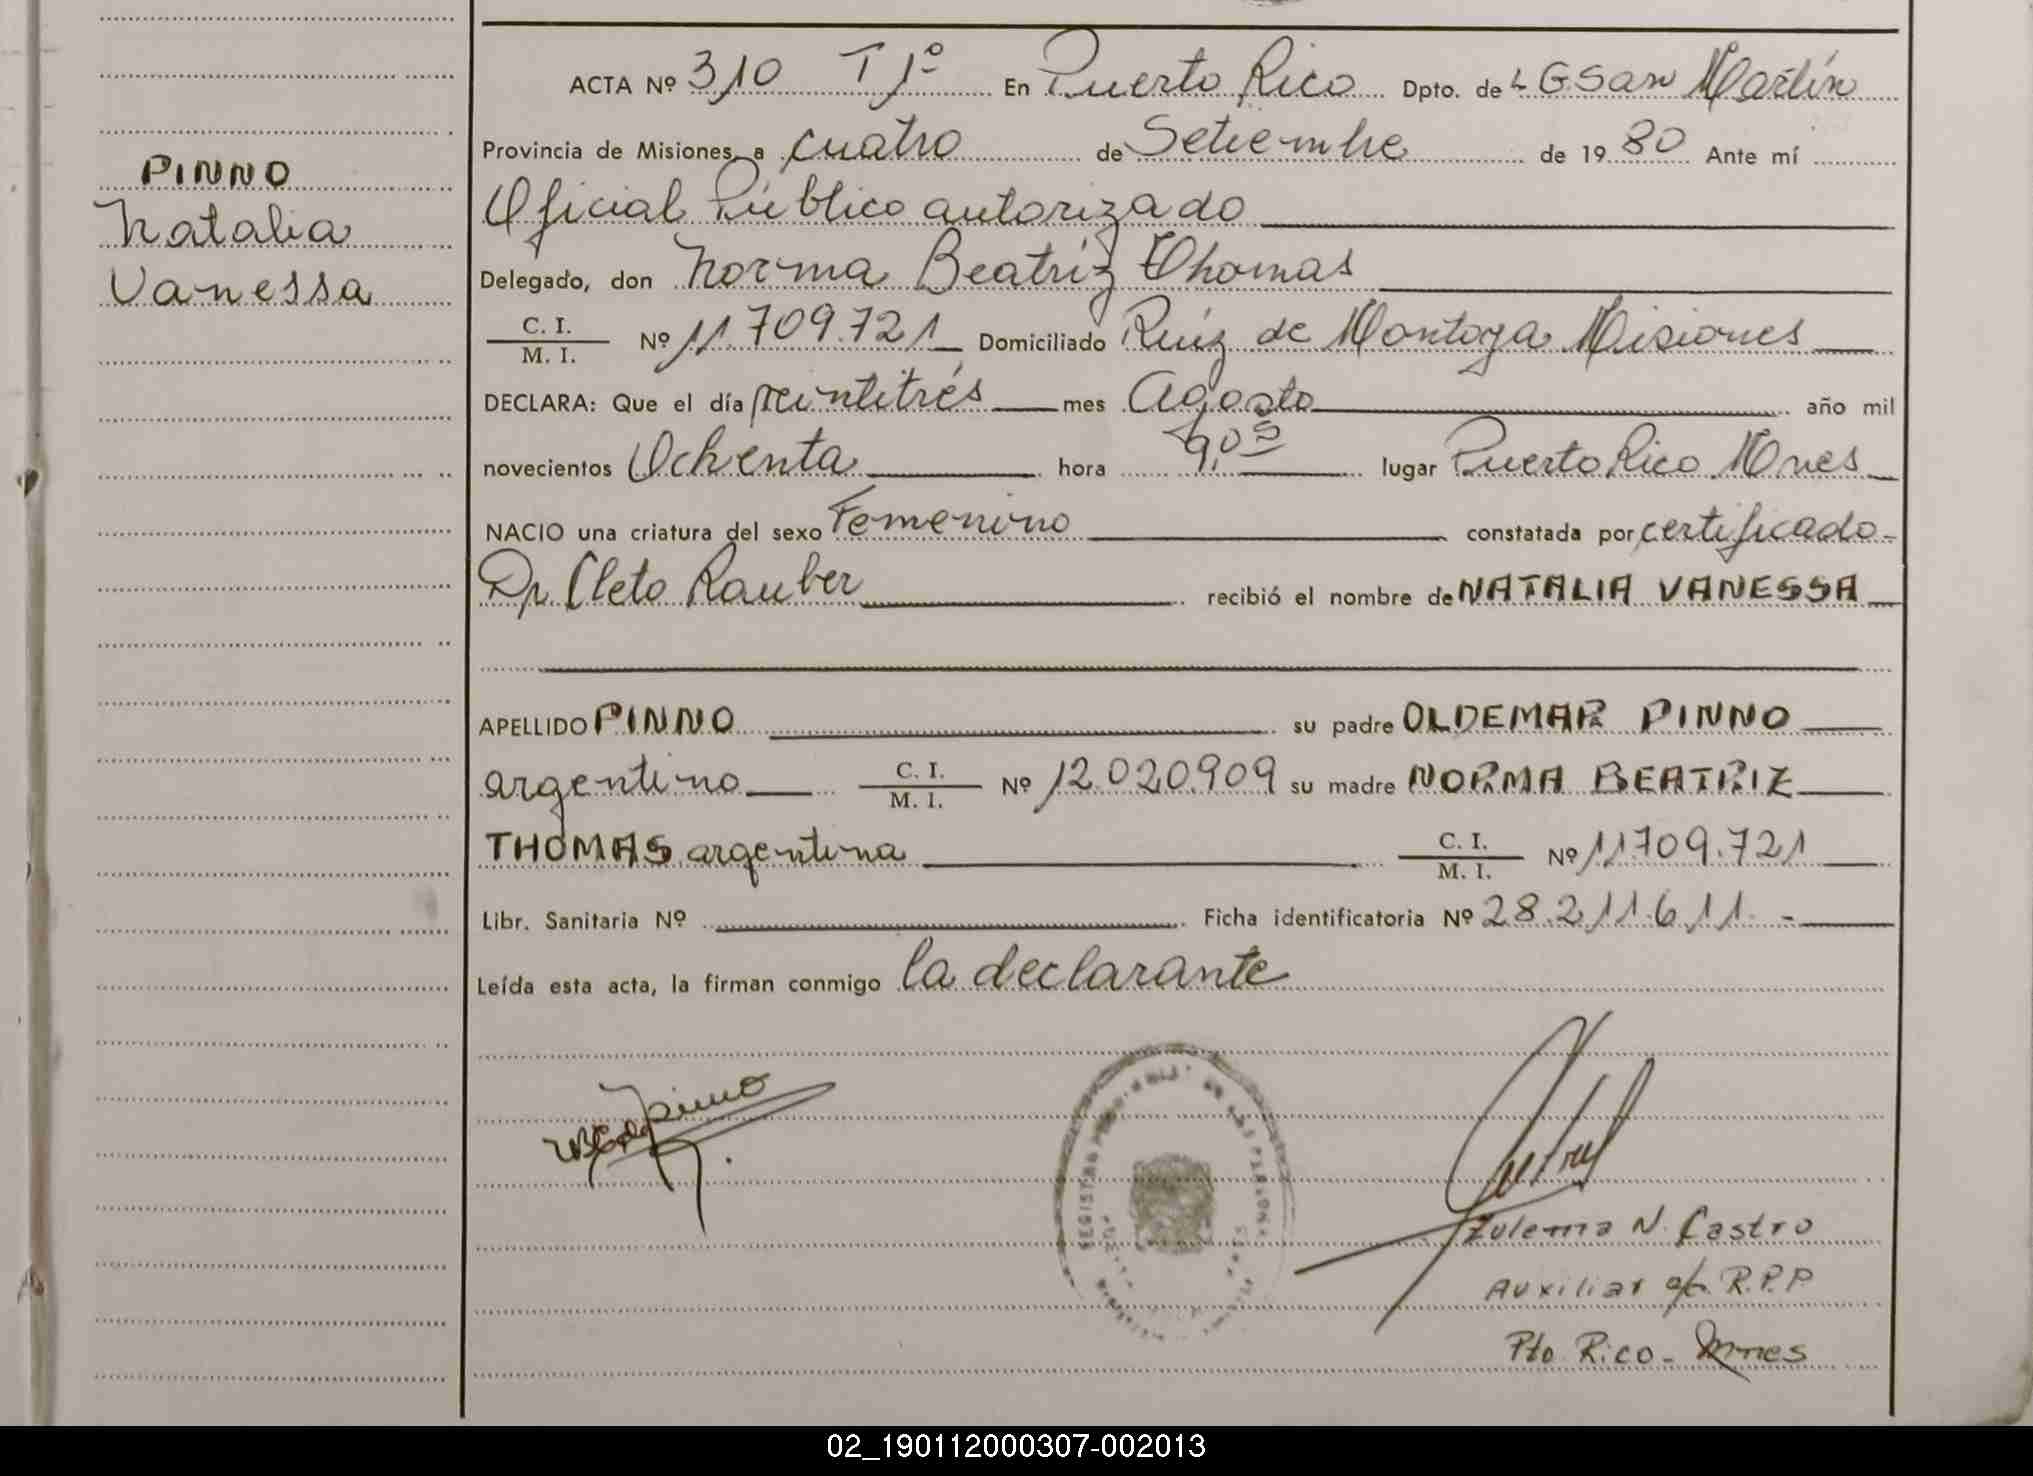 ACTA Nº 310 T 1º En Puerto Rico Dpto. de L G San Martín
Provincia de Misiones, a cuatro de Setiembre de 1980 Ante mí
Oficial Público autorizado
Delegado, don Norma Beatriz Thomas
C. I.
M. I. Nº 11.709.721 Domiciliado Ruiz de Montoya Misiones
DECLARA: Que el día veintitrés mes Agosto año mil
novecientos Ochenta hora 9,05 lugar Puerto Rico Mnes
NACIO una criatura del sexo Femenino constatada por certificado
Dr Cleto Rauber recibió el nombre de NATALIA VANESSA
APELLIDO PINNO su padre OLDEMAR PINNO
argentino C. I.
M. I. Nº 12.020.909 su madre NORMA BEATRIZ
THOMAS argentina C. I.
M. I. Nº 11709.721
Libr. Sanitaria Nº Ficha identificatoria Nº 28.211.611.-
Leída esta acta, la firman conmigo la declarante
PINNO
Natalia
Vanessa
Zulema N. Castro
Auxiliar R.P.P
Pto Rico - Mnes
02_190112000307-002013